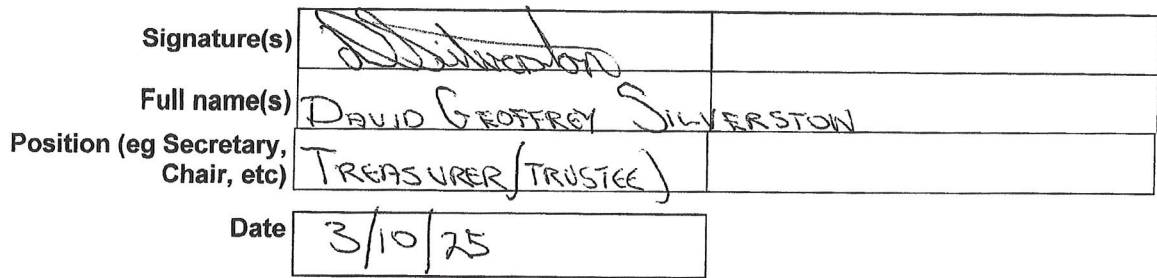 Signature(s) DSilverston
Full name(s) DAVID GEOFFREY SILVERSTON
Position (eg Secretary,
Chair, etc) TREASURER (TRUSTEE)
Date 3/10/25